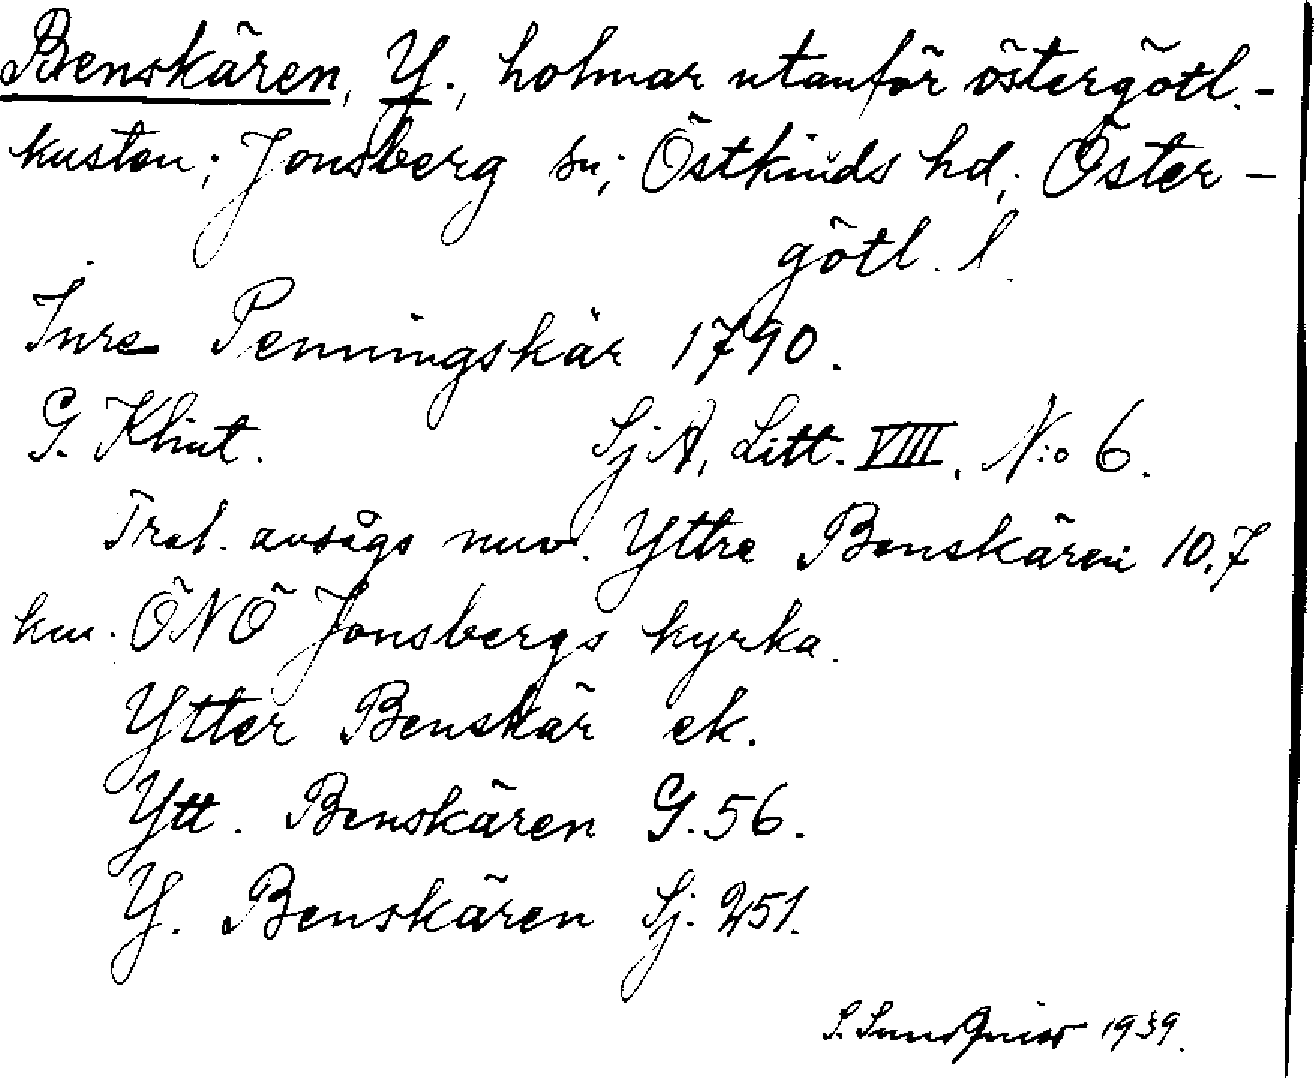 Benskären, Y., holmar utanför östergötl.-
kusten; Jonsberg sn; Östkinds hd; Öster-
götl. l.
Inre Penningskär 1790.
G. Klint. SjA, Litt. VIII, N:o 6.
Trol. avsågs nuv. Yttre Benskären 10,7
km. ÖNÖ Jonsbergs kyrka.
Ytter Benskär ek.
Ytt. Benskären G. 56.
Y. Benskären Sj. 251.
S. 1939.